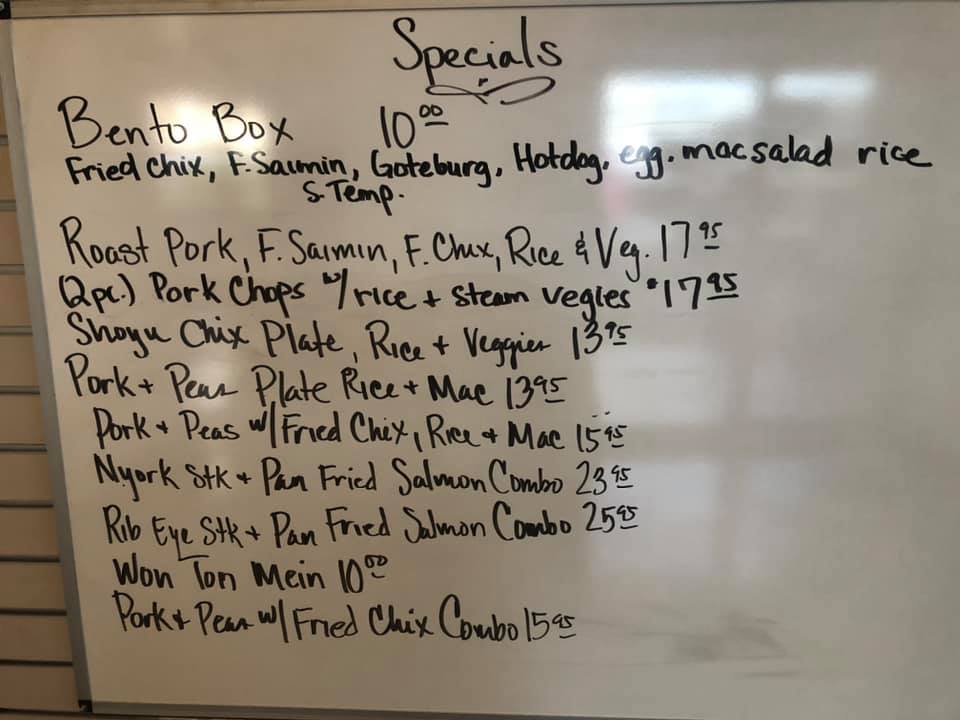 Specials
Bento Box 10.00
Fried Chix, F. Saimin, Goteburg, Hotdog, egg. mac salad rice
S. Temp.
Roast Pork, F. Saimin, F. Chix, Rice & Veg. 17.95
(2pc.) Pork Chops w/rice + steam vegies $17.95
Shoyu Chix Plate, Rice + Veggies 13.95
Pork + Peas Plate Rice + Mac 13.95
Pork + Peas w/ Fried Chix, Rice + Mac 15.95
Nyork Stk + Pan Fried Salmon Combo 23.95
Rib Eye Stk + Pan Fried Salmon Combo 25.95
Won Ton Mein 10.00
Pork + Peas w/ Fried Chix Combo 15.95